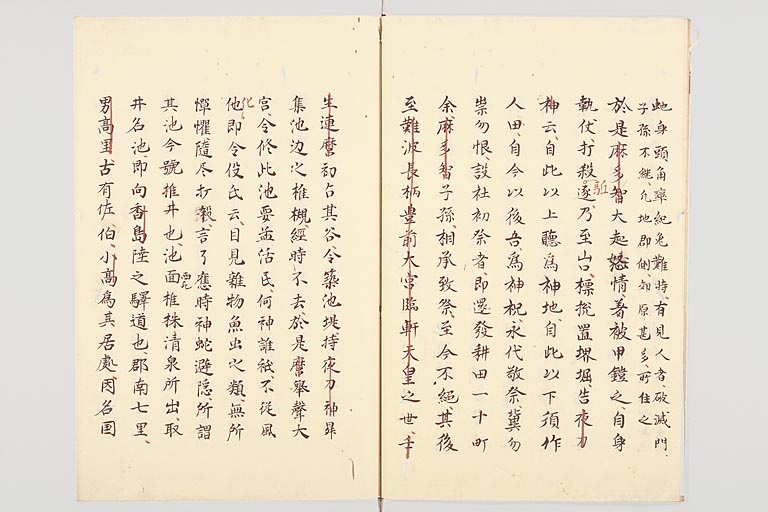 虵身頭角率紀免難時有見人者破滅門
子孫不継凢地即側郊原甚多所住之
於是麻多智大起怒情着被甲鎧之自身
執仗打殺逐乃至山口標掍置堺堀告夜刀
駈
神云自此以上聽爲神地自此以下須作
人田自今以後吾爲神祝永代敬祭冀勿
祟勿恨設社初祭者即還發耕田一十町
余麻多智子孫相承致祭至今不絕其後
至難波長柄豊前大宮臨軒天皇之世壬
生連麿初占其谷令築池堤時夜刀神昇
集池辺之椎槻經時不去於是麿舉聲大
宮令修此池要盆活民何神誰祇不従風
化
他即令伇民云目見雜物魚虫之類無所
憚懼隨尽打煞言了應時神蛇避隠所謂
其池今號椎井也池面椎株清泉所出取
井名池即向香島陸之驛道也郡南七里
男高里古有佐伯小高爲其居處因名囯